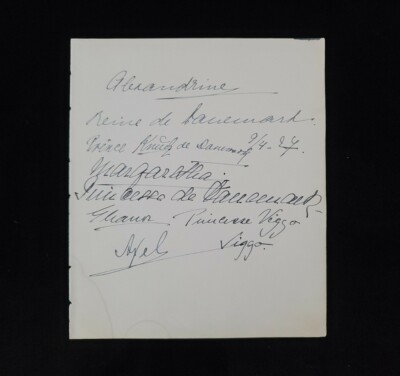 Alexandrine
Reine de Danemark.
Prince Knud de Danemark 9/4-27.
Margaretha
Princesse de Danemark
Eleanor. Princesse Viggo
Axel Viggo.